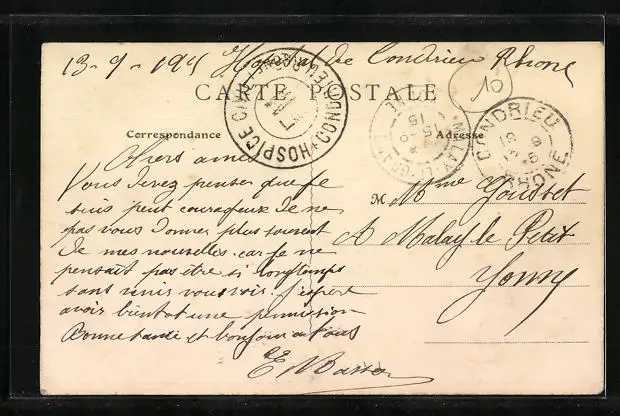 13-9-1915 Hopital de Condrieu Rhone
10
CARTE POSTALE
HOSPICE CIVIL CONDRIEU RHONE
CONDRIEU RHONE
15
Correspondance
Adresse
Chers amis
Vous devez penser que je
suis peut courageux de ne
pas vous donner plus souvent
de mes nouvelles. car je ne
pensait pas etre si longtemps
sans venir vous voir. J'espere
avoir bientot une permission
Bonne santé et bonjour a tous
M Mme Gousset
A Malay le Petit
Yonne